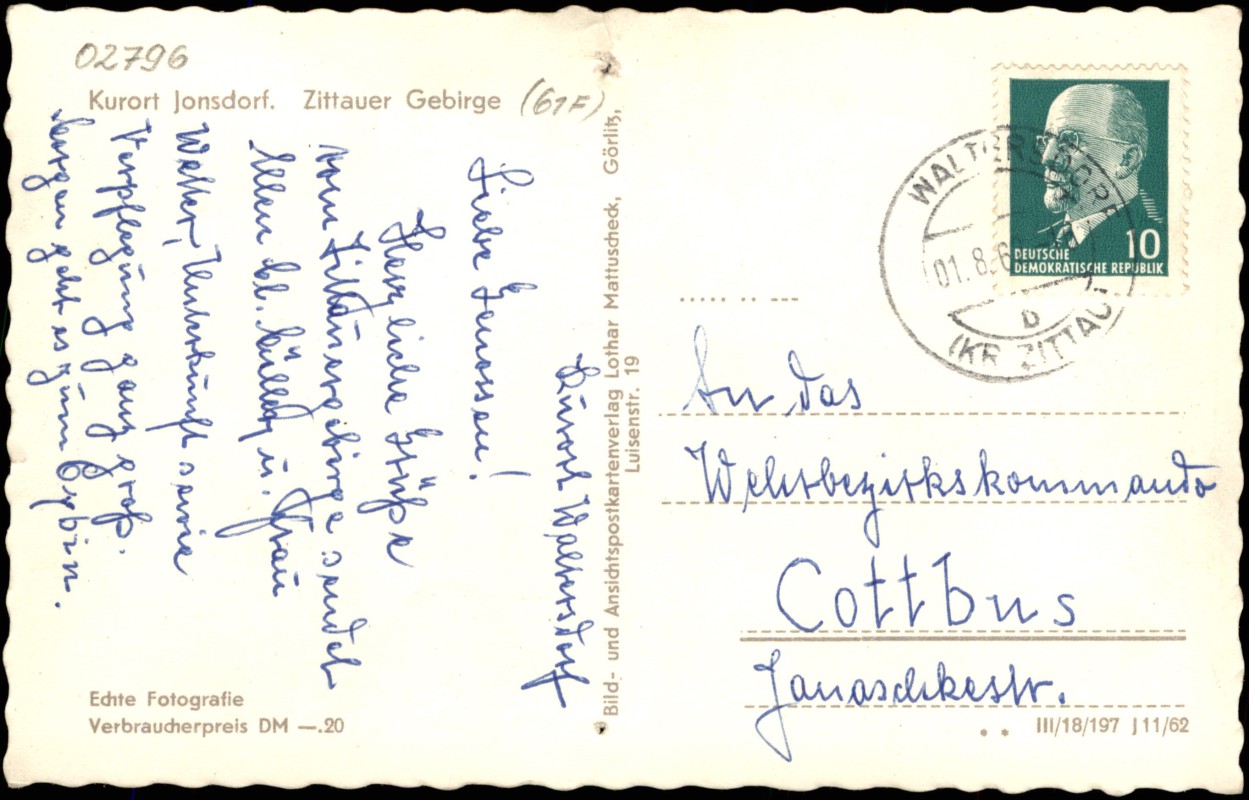 02796
Kurort Jonsdorf. Zittauer Gebirge (61F)
Kurort Waltersdorf
Liebe Genossen!
Herzliche Grüße
vom Zittauergebirge sendet
Ellen bl. u. Frau
Wetter, Unterkunft sowie
Verpflegung ganz groß.
Morgen geht es zum Oybin.
Echte Fotografie
Verbraucherpreis DM —.20
Bild- und Ansichtspostkartenverlag Lothar Mattuscheck, Görlitz,
Luisenstr. 19
DEUTSCHE
DEMOKRATISCHE REPUBLIK
10
WALTERSDORF
01.8.6
b
(KR. ZITTAU)
An das
Wehrbezirkskommando
Cottbus
Janaschkestr.
III/18/197 J 11/62